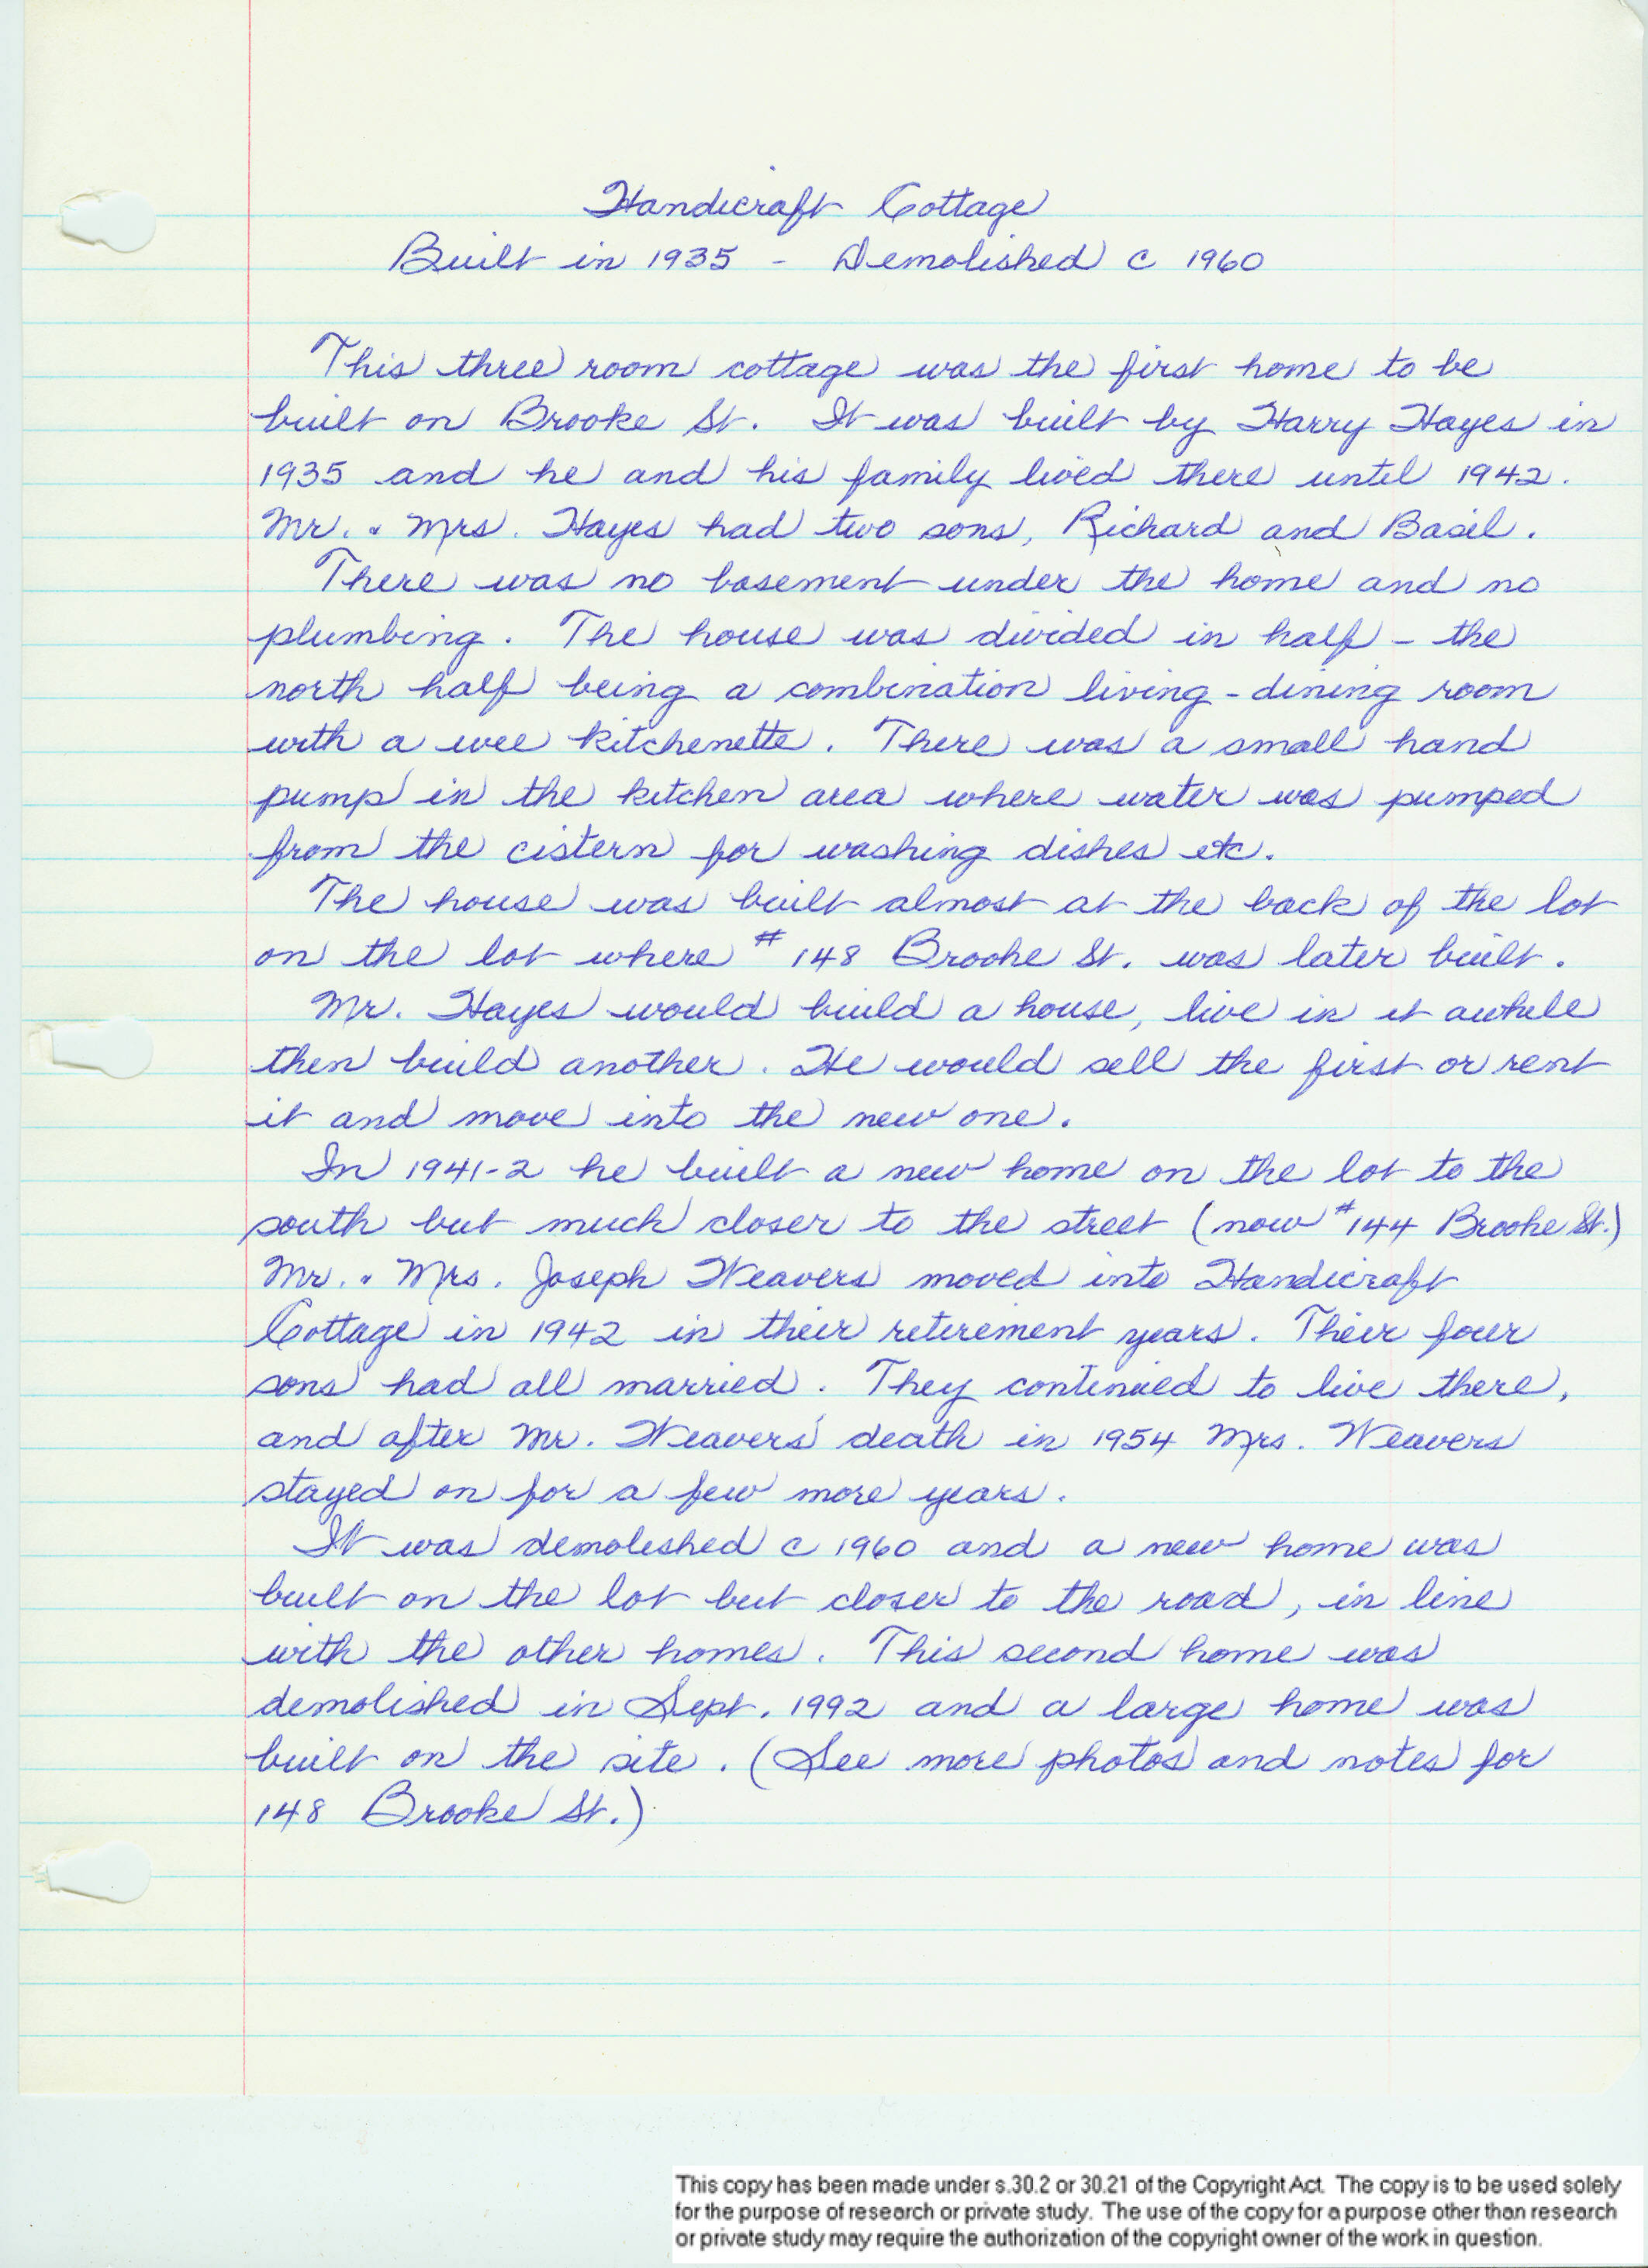 Handicraft Cottage
Built in 1935 - Demolished c 1960
This three room cottage was the first home to be
built on Brooke St. It was built by Harry Hayes in
1935 and he and his family lived there until 1942.
Mr. & Mrs. Hayes had two sons, Richard and Basil.
There was no basement under the home and no
plumbing. The house was divided in half - the
north half being a combination living-dining room
with a wee kitchenette. There was a small hand
pump in the kitchen area where water was pumped
from the cistern for washing dishes etc.
The house was built almost at the back of the lot
on the lot where #148 Brooke St. was later built.
Mr. Hayes would build a house, live in it awhile
then build another. He would sell the first or rent
it and move into the new one.
In 1941-2 he built a new home on the lot to the
south but much closer to the street (now #144 Brooke St.)
Mr. & Mrs. Joseph Weavers moved into Handicraft
Cottage in 1942 in their retirement years. Their four
sons had all married. They continued to live there,
and after Mr. Weavers' death in 1954 Mrs. Weavers
stayed on for a few more years.
It was demolished c 1960 and a new home was
built on the lot but closer to the road, in line
with the other homes. This second home was
demolished in Sept. 1992 and a large home was
built on the site. (See more photos and notes for
148 Brooke St.)
This copy has been made under s.30.2 or 30.21 of the Copyright Act. The copy is to be used solely
for the purpose of research or private study. The use of the copy for a purpose other than research
or private study may require the authorization of the copyright owner of the work in question.